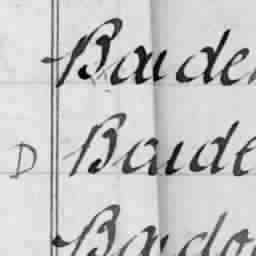 Baide
D Baide
Bado